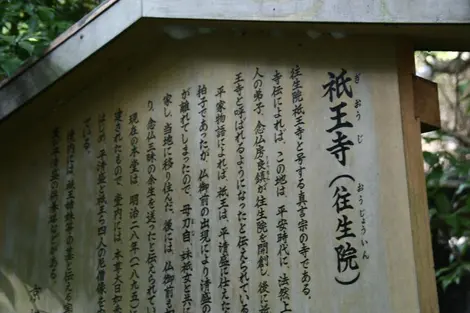 祇王寺（往生院）
ぎおうじ
おうじょういん
往生院祇王寺と号する真言宗の寺である。
寺伝によれば、この地は、平安時代に、法然上
人の弟子、念仏房良鎮が往生院を開創し、後に祇
王寺と呼ばれるようになったと伝えられている
平家物語によれば、祇王は、平清盛に仕えた
拍子であったが、仏御前の出現により清盛の
が離れてしまったので、母刀自、妹祇女と共に
家し、当地に移り住んだ。後には、仏御前も
り、念仏三昧の余生を送ったと伝えられてい
現在の本堂は、明治二八年（一八九五）
建されたもので、堂内には、本尊大日如
はじめ、平清盛と祇王ら四人の尼僧像を安
ている。
境内には、祇王姉妹等の墓と伝える宝
塔と平清盛の供養塔などがある。
京